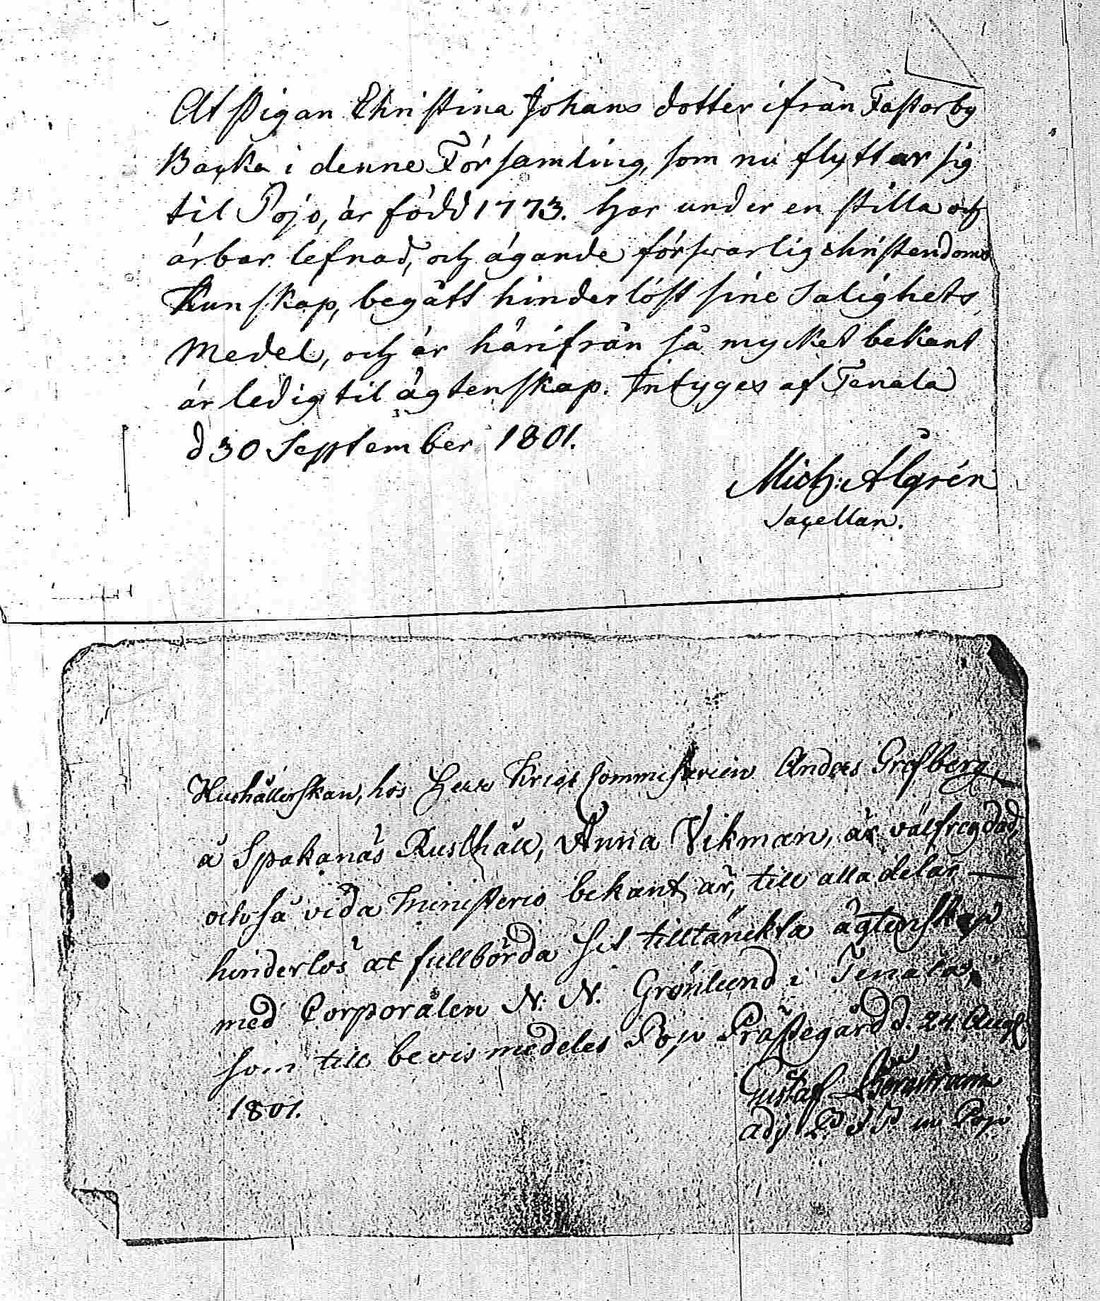 At Pigan Christina Johans dotter ifrån Fastarby
Backa i denne Församling, som nu flyttar sig
til Pojo, är född 1773. har under en stilla och
ärbar lefnad, och ägande förswarlig christendoms
Kunskap, begått hinderlöst sine Salighets
Medel, och är härifrån så mycket bekant
är ledig til ägtenskap. Intyges af Tenala
d 30 September 1801.
Mich: Algrén
Sacellan.
Hushållerskan, hos Herr Krigs Commissarien Anders Grefberg
å Spakanäs Rusthåll, Anna Vikman, är välfregdad,
och så vida Ministerio bekant är, till alla delar
hinderlös at fullborda sit tilltänckta ägtenskap
med Corporalen N. N. Grönlund i Tenala,
som till bevis meddeles Pojo Prästegård d. 24 Aug:
1801.
Gustaf
adj in Pojo